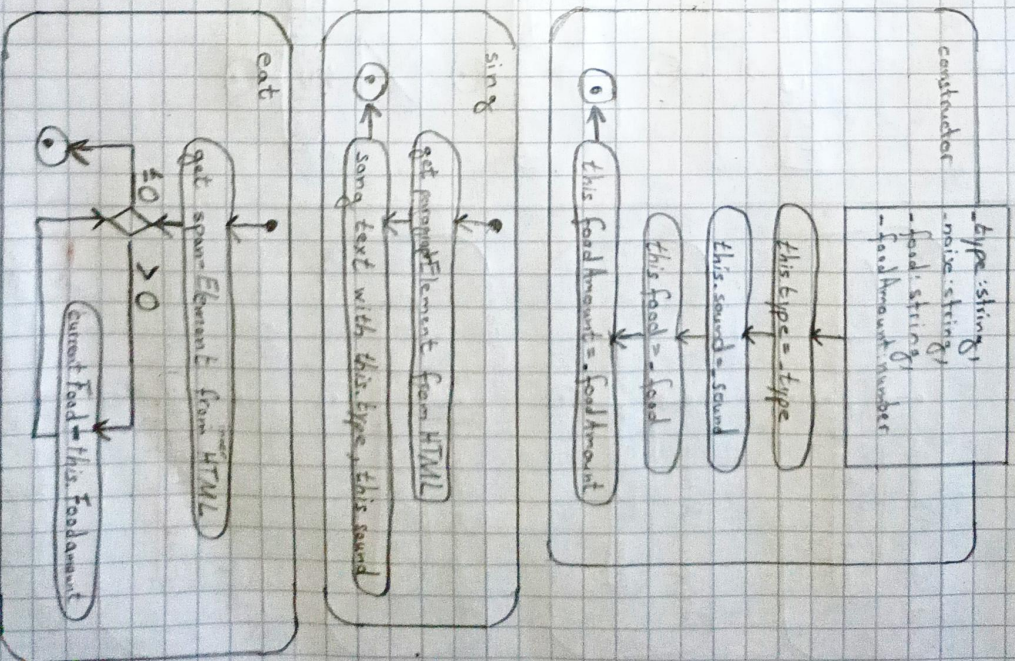 constructor
_type:string,
_noise:string,
_food:string,
_foodAmount:number
this.type=_type
this.sound=_sound
this.food=_food
this.foodAmount=_foodAmount
sing
get paragraphElement from HTML
song text with this.type, this.sound
eat
get span-Element from HTML
≤0
>0
currentFood-this.Foodamount